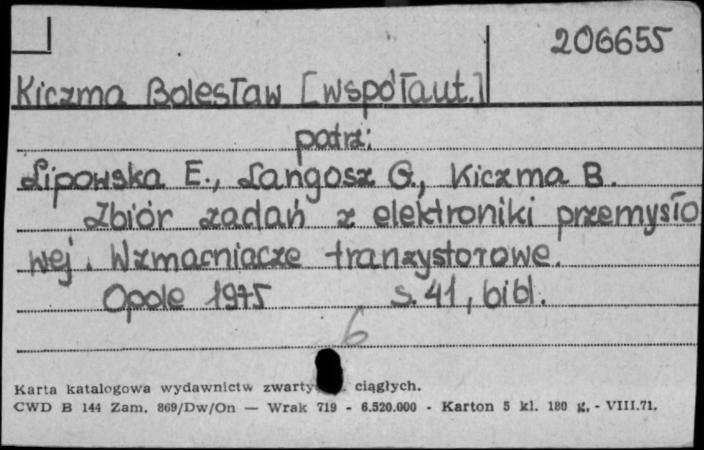 206655
Kiczma Bolesław [współaut.]
patrz:
Lipowska E., Langosz G., Kiczma B.
Zbiór zadań z elektroniki przemysło
wej. Wzmacniacze tranzystorowe.
Opole 1975 s. 41, bibl.
6
Karta katalogowa wydawnictw zwarty ciągłych.
CWD B 144 Zam. 869/Dw/On — Wrak 719 - 6.520.000 - Karton 5 kl. 180 g. - VIII.71.